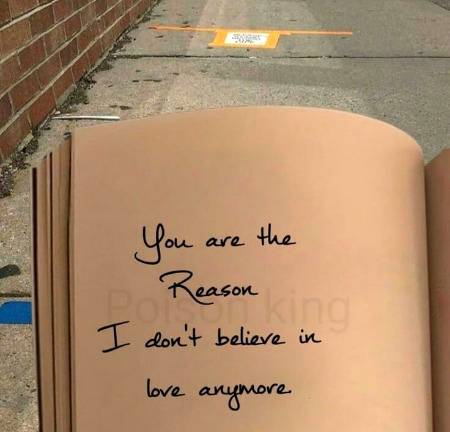 You are the
Reason
Poison king
I don't believe in
love anymore.